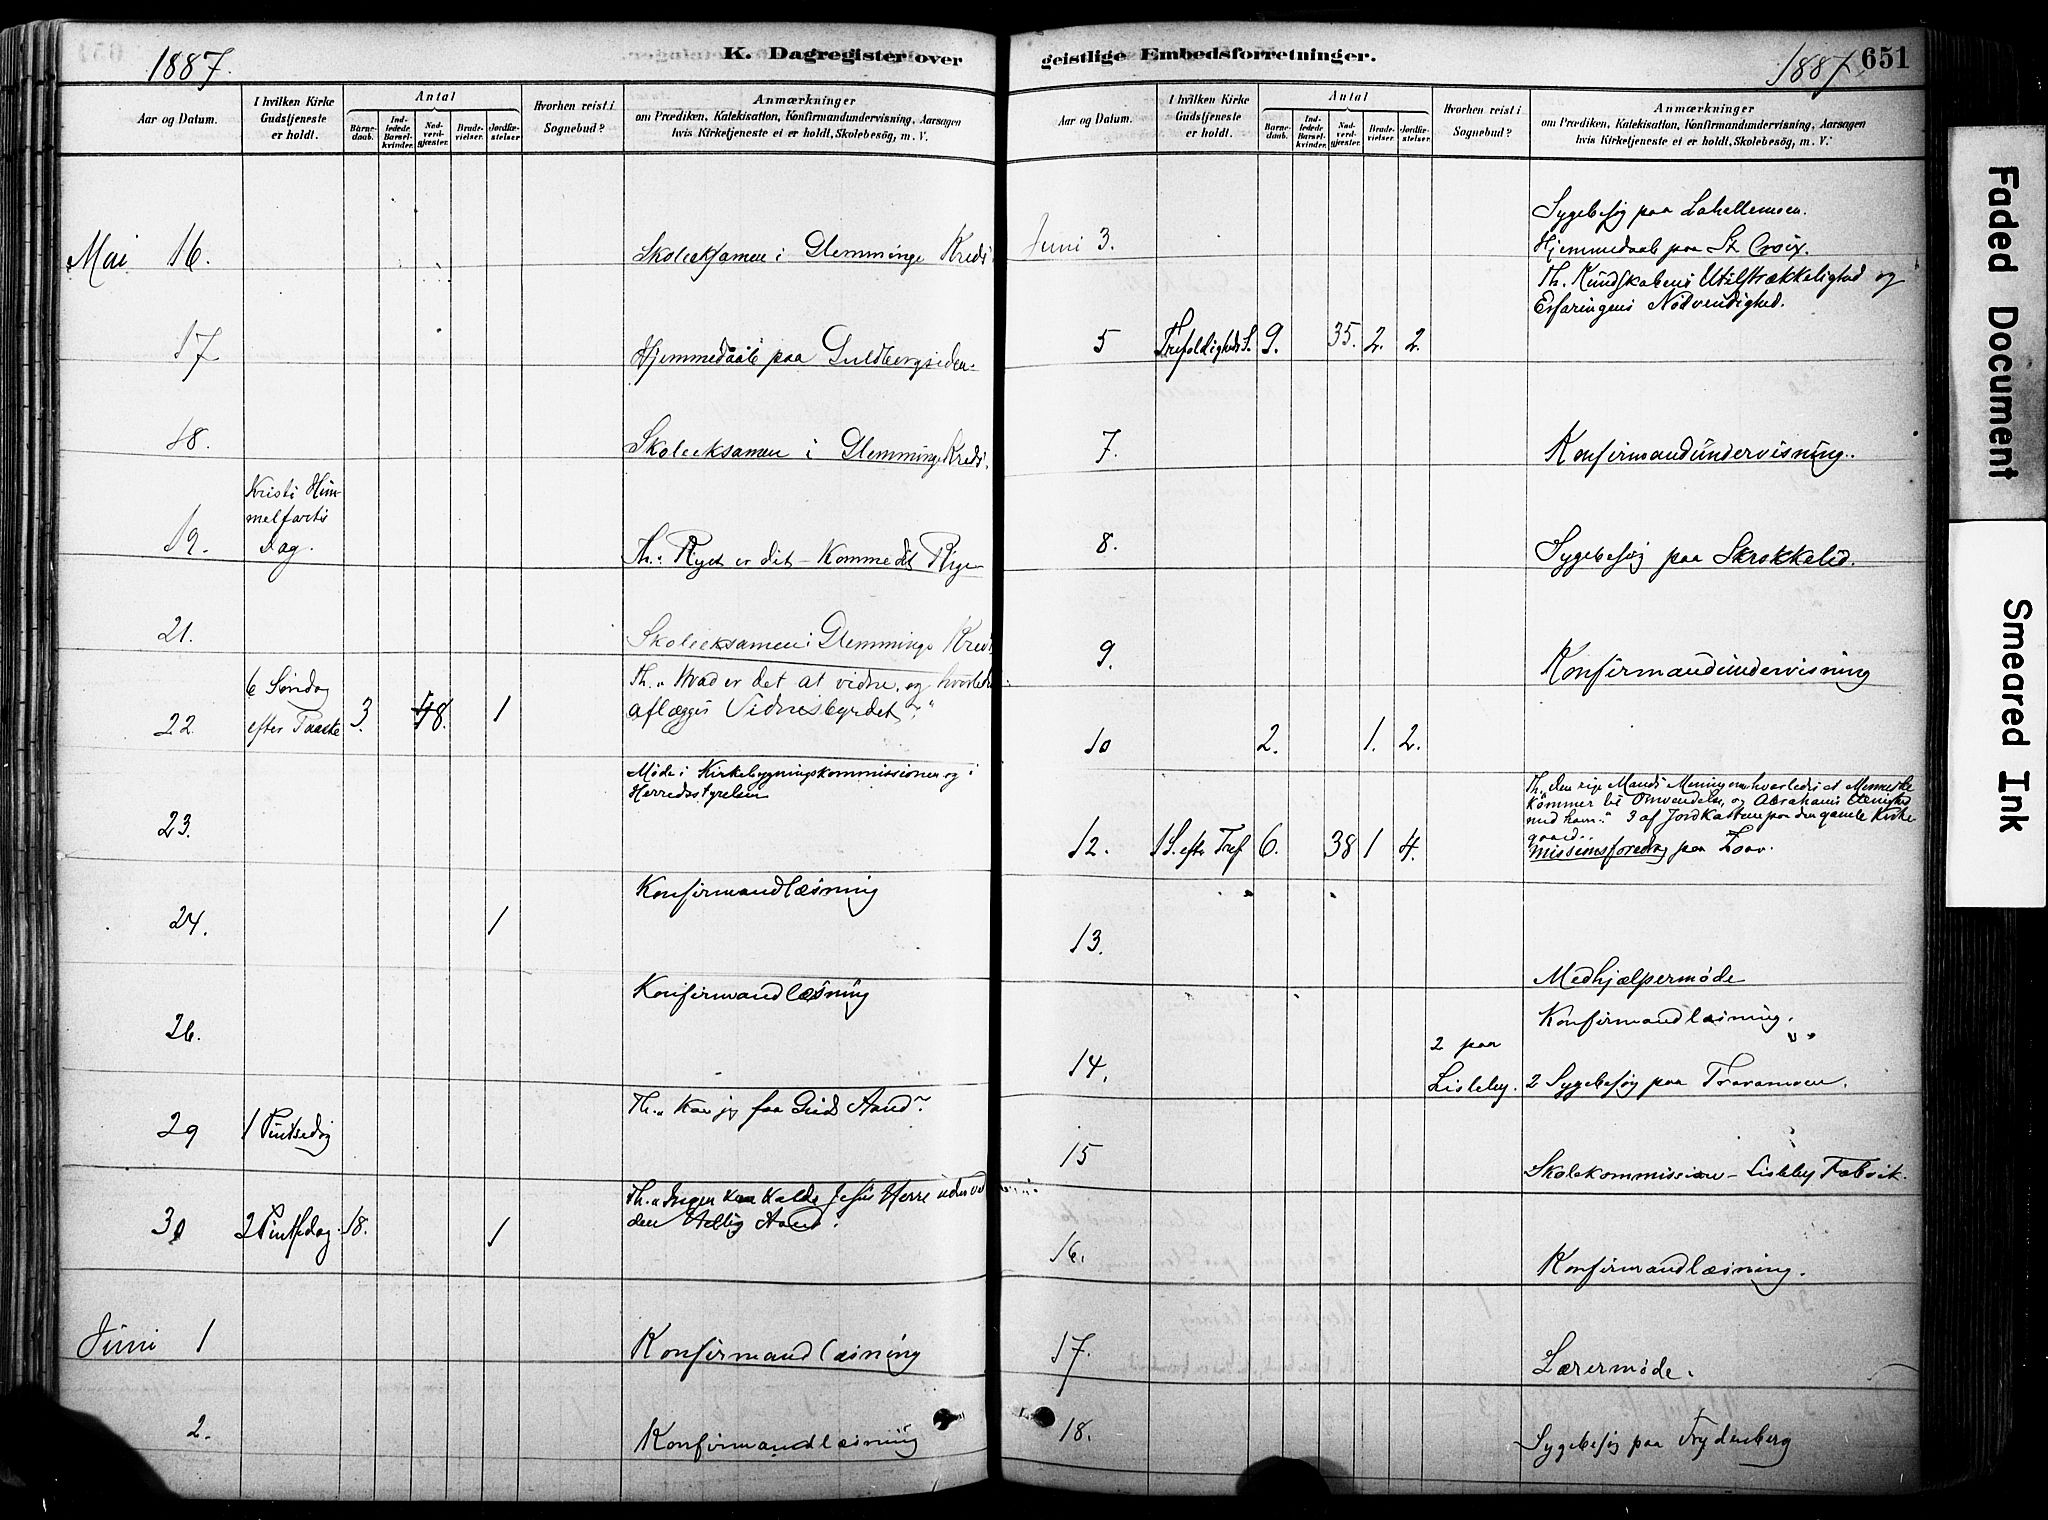 1887.
K. Dagregister over
Aar og Datum.
I hvilken Kirke Gudstjeneste er holdt.
Antal
Barnedaab.
Indledede Barselkvinder.
Nadverdgjæster.
Brudevielser.
Jordfæstelser.
Hvorhen reist i Sognebud?
Anmærkninger
om Prædiken, Katekisation, Konfirmandundervisning, Aarsagen
hvis Kirketjeneste ei er holdt, Skolebesög, m. V.
Mai 16. Skoleeksamen i Glemminge Kreds
17 Hjemmedaab paa Guldbergsiden.
18. Skoleeksamen i Glemminge Kreds.
Kristi Him-
melfarts
19. Dag. Th.: Riget er dit – Komme dit Rige
21. Skoleeksamen i Glemminge Kreds
6 Søndag Th. „Hvad er det at vidne, og hvorledes
22. efter Paaske 3. 48. 1 aflægges Vidnesbyrdet?"
Møde i Kirkebygningskommissionen og i
Herredsstyrelsen
23.
Konfirmandlæsning
24. 1
Konfirmandlæsning
26.
Th. „Kan jeg faa Guds Aand"?
29 1 Pintsedag
Th. „Ingen kan kalde Jesus Herre uden ved
30 2 Pintsedag. 18. 1 den Hellig Aand.
Juni 1 Konfirmandlæsning
2. Konfirmandlæsning
geistlige Embedsforretninger.
1887. 651
Aar og Datum.
I hvilken Kirke Gudstjeneste er holdt.
Antal
Barnedaab.
Indledede Barselkvinder.
Nadverdgjæster.
Brudevielser.
Jordfæstelser.
Hvorhen reist i Sognebud?
Anmærkninger
om Prædiken, Katekisation, Konfirmandundervisning, Aarsagen
hvis Kirketjeneste ei er holdt, Skolebesög, m. V.
Sygebesøg paa Lahellemoen.
Juni 3. Hjemmedaab paa St Croix.
Th. Kundskabens Utilstrækkelighed og
Erfaringens Nødvendighed.
5 Trefoldigheds S. 9. 35. 2. 2.
7. Konfirmandundervisning.
8. Sygebesøg paa Skrokkelid.
9. Konfirmandundervisning
10 2. 1. 2.
Th. „den rige Mands Mening om hvorledes et Menneske
kommer til Omvendelse, og Abrahams Uenighed
med ham." 3 af Jordkastene paa den gamle Kirke
gaard.
12. 1 S. efter Tref 6. 38 1 4. Missionsforedrag paa
13.
Medhjælpermøde
Konfirmandlæsning.
2 paa
14. Lisleby. 2 Sygebesøg paa Traramoen.
15 Skolekommission – Lisleby Fabrik.
16. Konfirmandlæsning.
17. Lærermøde.
18. Sygebesøg paa Frydenberg
Faded Document
Smeared Ink